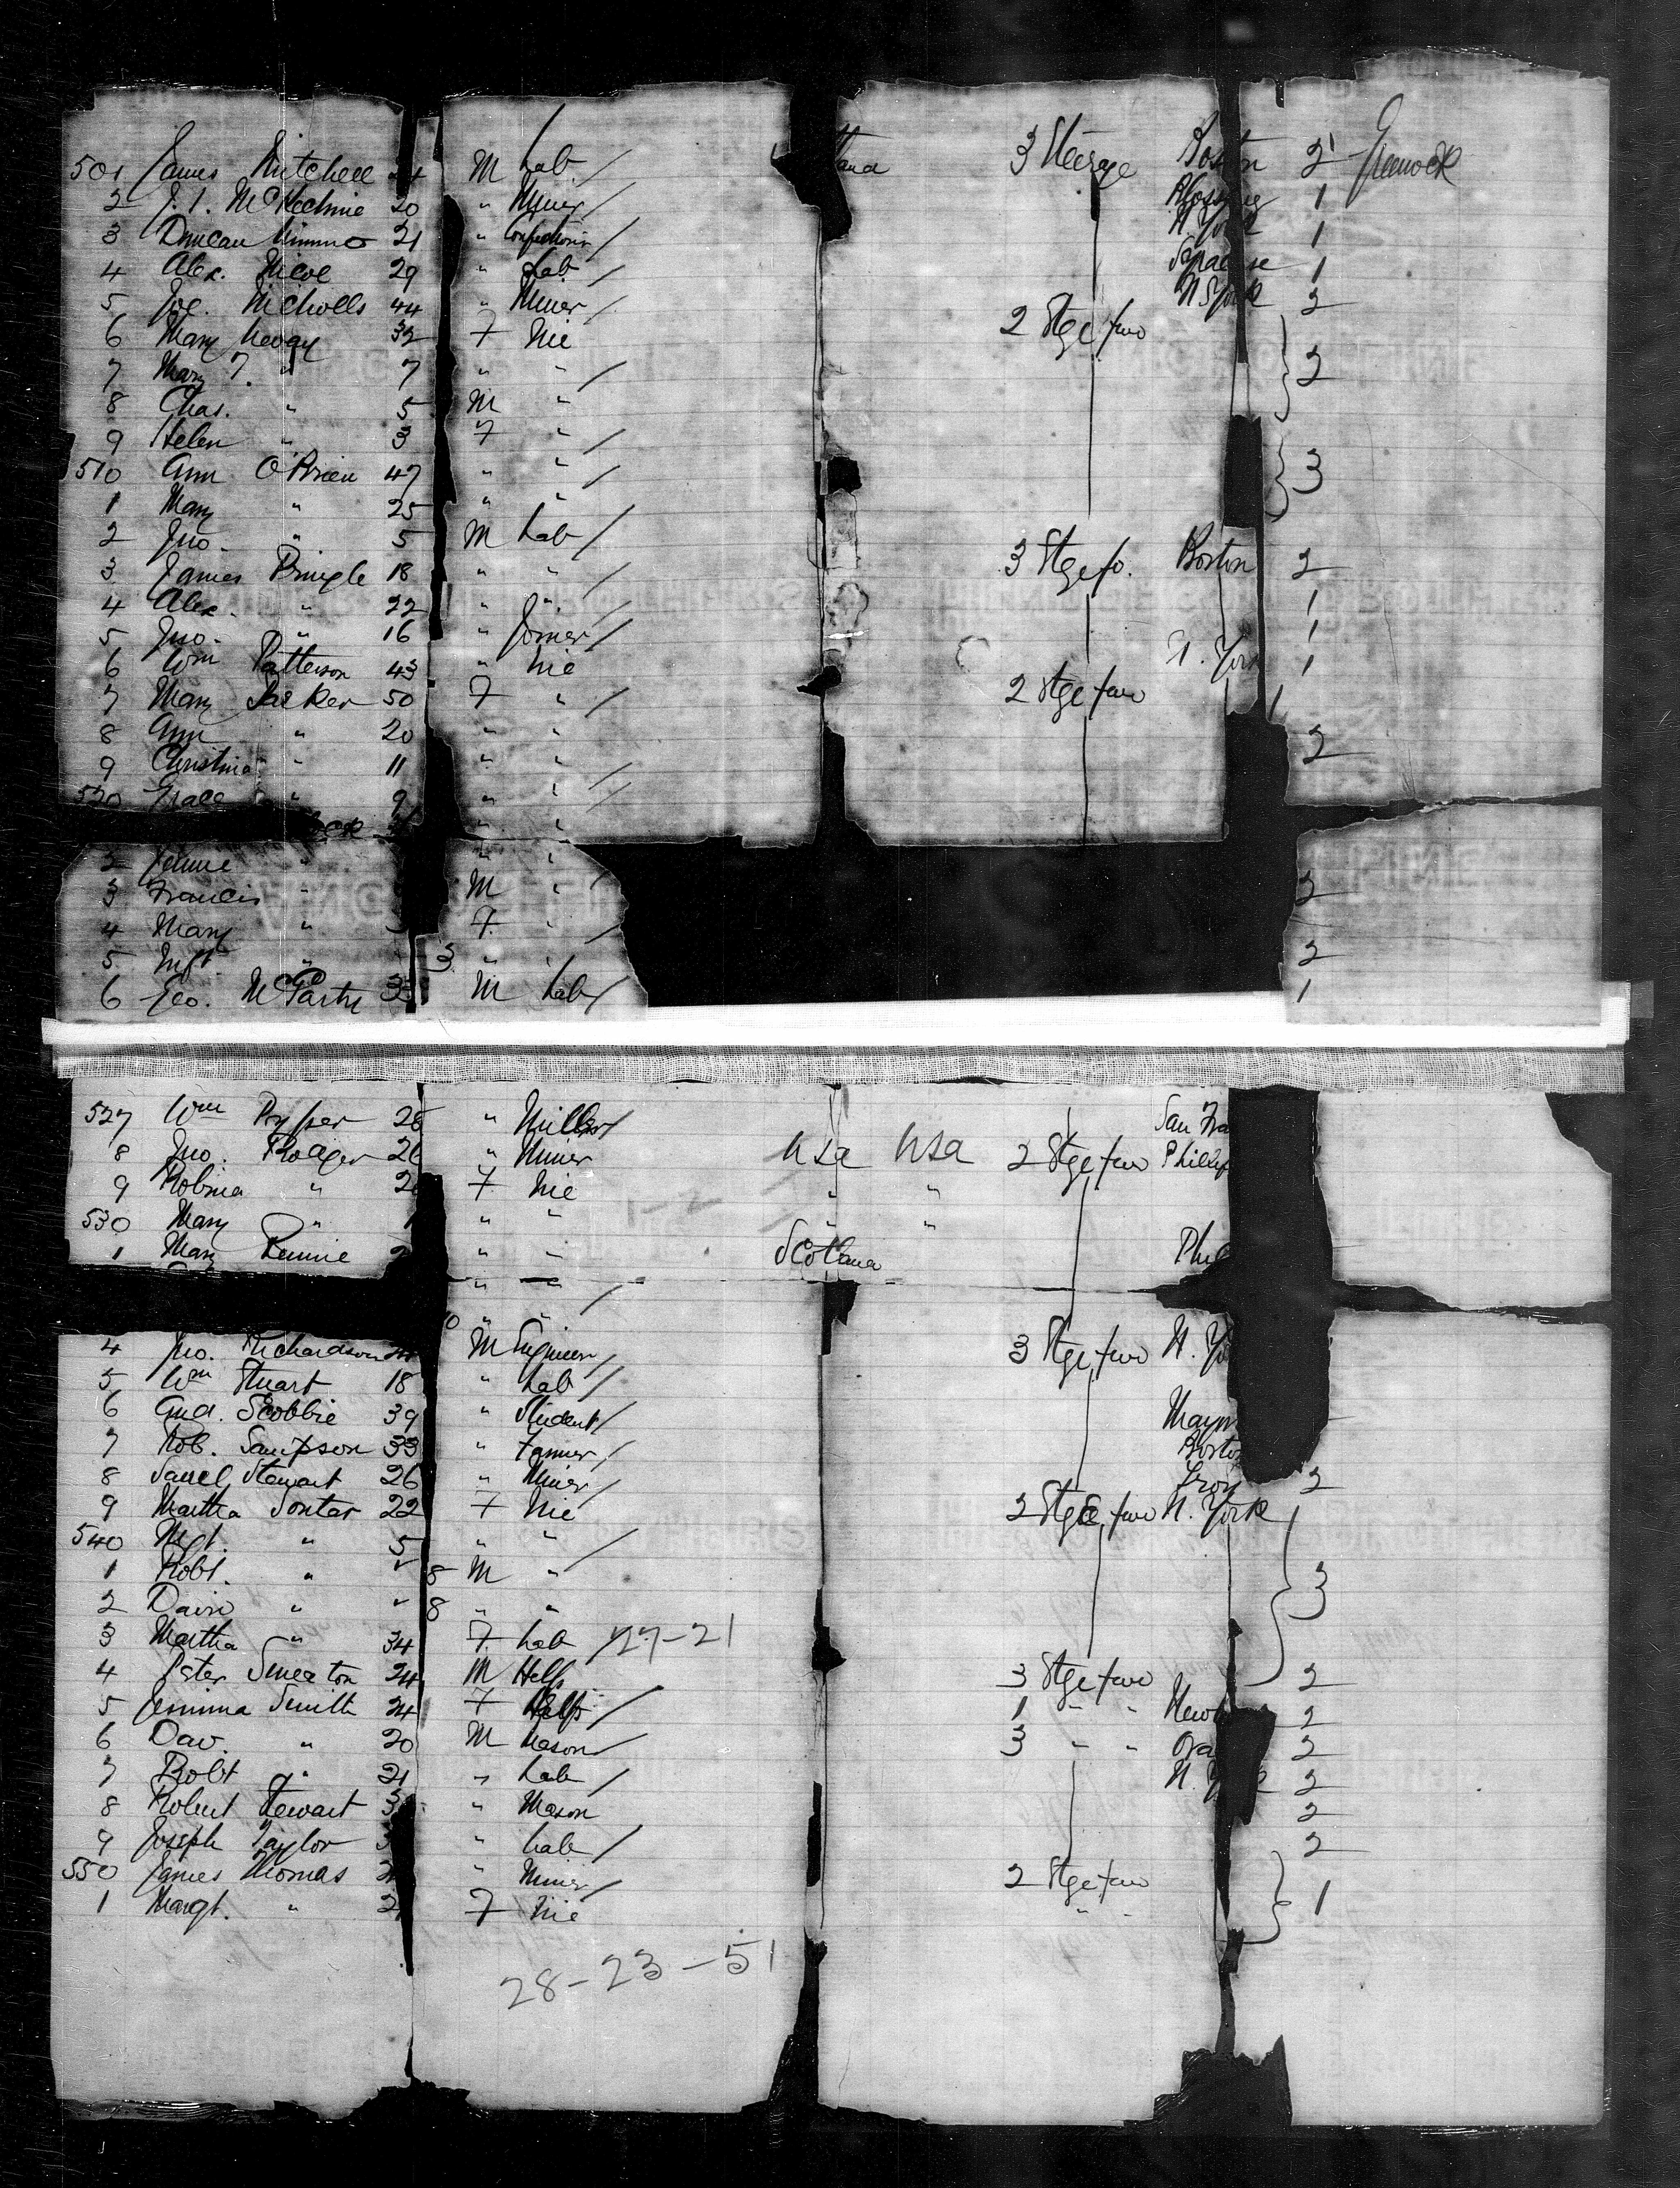 501 James Mitchell 24 M Lab. 3 Steerage Boston 2 Greenock
2 J. McKechnie 20 " Miner 1
3 Duncan Nimmo 21 " Confectioner N York 1
4 Alex. Nicol 29 " Lab Syracuse 1
5 Joe. Nicholls 44 " Miner N York 2
6 Mary 32 F Nie 2 Stge fwo
7 Mary J. " 7 " " 2
8 Chas. " 5 M "
9 Helen " 3 F "
510 Ann O'Brien 47 " " 3
1 Mary " 25 " "
2 Jno. " 5 M Lab
3 James Pringle 18 " " 3 Stge fo. Boston 2
4 Alex. " 22 " " 1
5 Jno. " 16 " Joiner 1
6 Wm Patterson 43 " Nie N. York 1
7 Mary Parker 50 F " 2 Stge fwo 1
8 Ann " 20 " " 2
9 Christina " 11 " "
520 Grace " 9 " "
" "
2 Jennie " " "
3 Francis " M " 2
4 Mary " 3 F "
5 Inft " 3 " " 2
6 Geo. McParty M Lab 1
527 Wm Pryper 28 " Miller San Fra
8 Jno. Rodger 26 " Miner USA USA 2 Stge fwo Philip
9 Robina " 2 F Nie " "
530 Mary " " " " "
1 Mary Rennie 2 " " Scotland Phil
" "
4 Jno. Richardson M Engineer 3 Stge fwo N. Yo
5 Wm Stuart 18 " Lab
6 And. Scobbie 39 " Student Mayn
7 Rob. Sampson 33 " Farmer Bosto
8 Saml Stewart 26 " Miner 2
9 Martha Sontar 22 F Nie 2 Stge fwo N. York
540 Mgt. " 5 " "
1 Robt. " 8 M " 3
2 David " " 8 " "
3 Martha " 34 F Lab 27-21
4 Peter Smeaton 24 M Help 3 Stge fwo 2
5 Jemima Smith 24 F Help 1 " " Newb 2
6 Dav. " 20 M Mason 3 " " Ora 2
7 Robt " 21 " Lab N. Y 2
8 Robert Stewart 3 " Mason 2
9 Joseph Taylor 3 " Lab 2
550 James Thomas 2 " Miner 2 Stge fwo
1 Margt. " 2 F Nie " " 1
28-23-51